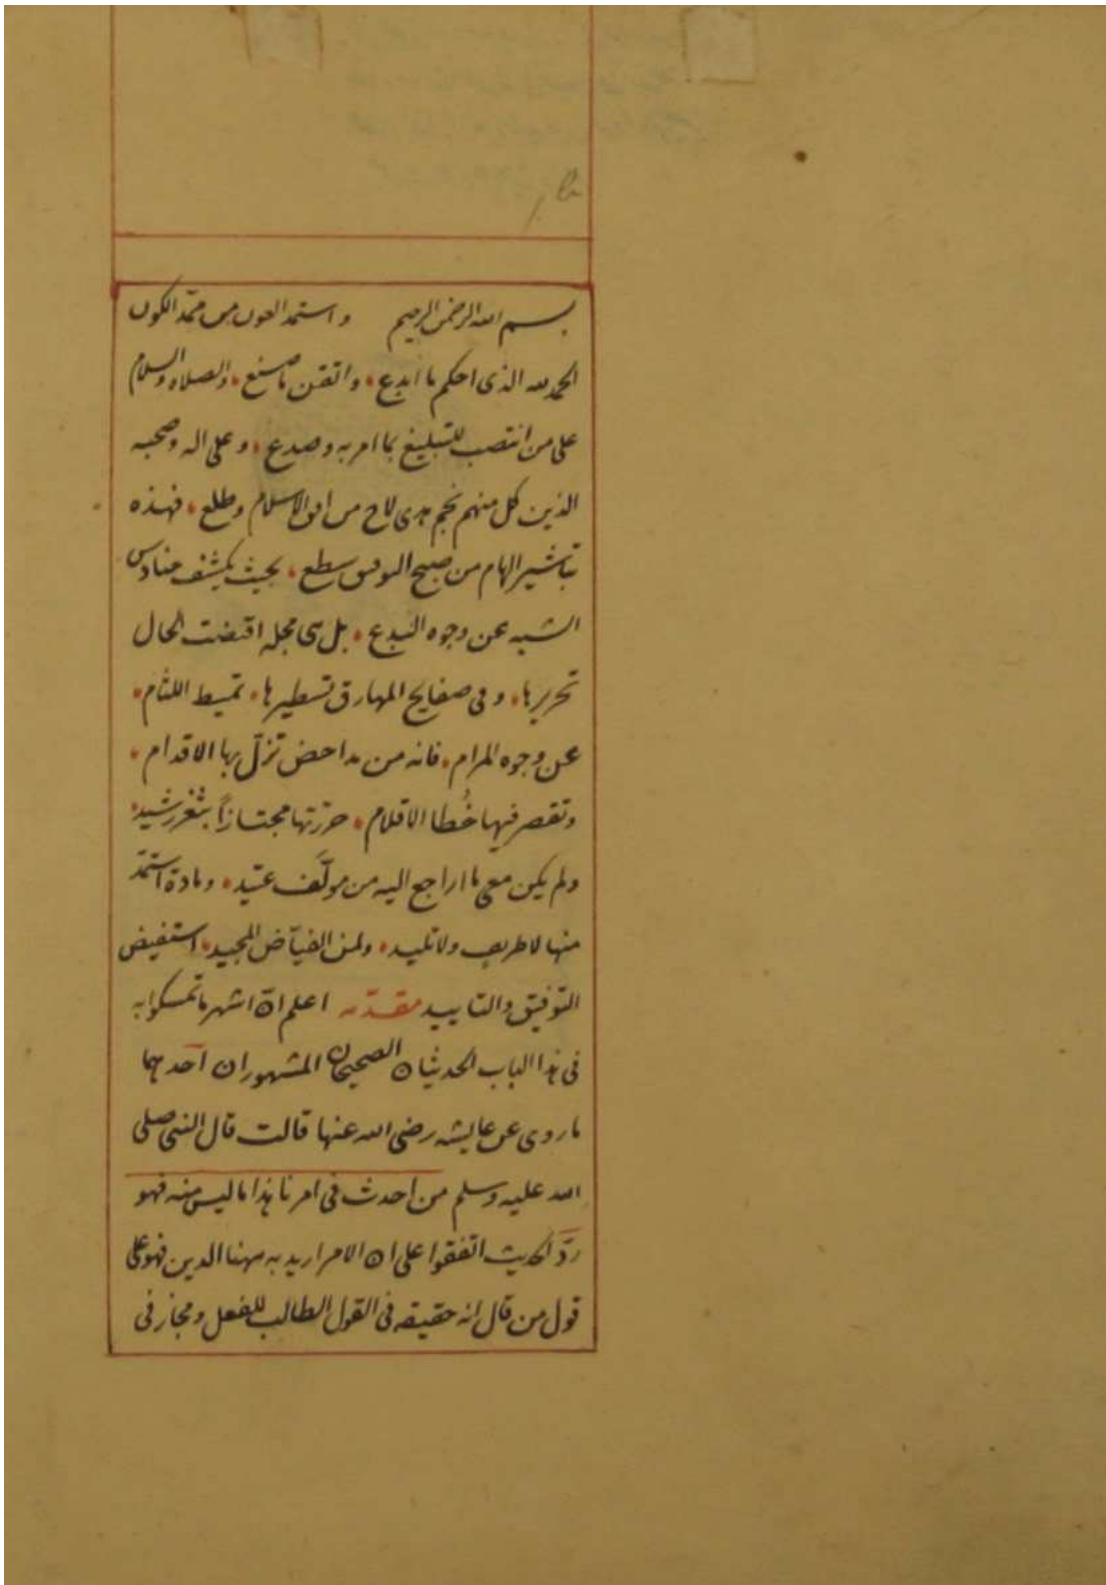 بسم الله الرحمن الرحيم واستمد العون من ممد الكون
الحمد لله الذى احكم ما ابدع واتقن ما صنع والصلاه والسلام
على من انتصب للتبليغ بما امر به وصدع وعلى اله وصحبه
الذين كل منهم نجم هدى لاح من افق الاسلام وطلع فهذه
تباشير الهام من صبح التوفيق سطع بحيث يكشف حنادس
الشبه عن وجوه البدع بل هى مجلة اقتضت الحال
تحريرها وفى صفايح المهارق تسطيرها تميط اللثام
عن وجوه المرام فانه من مداحض تزلّ بها الاقدام
وتقصر فيها خُطا الاقلام حررتها مجتازاً بثغر رشيد
ولم يكن معى ما اراجع اليه من مولَّف عتيد ومادة استمدّ
منها لا طريف ولا تليد ولمن الفيّاض المجيد استفيض
التوفيق والتاييد مقدّمه اعلم انّ اشهر ما تمسكوا به
فى هذا الباب الحديثان الصحيحان المشهوران احدهما
ما روى عن عايشه رضى الله عنها قالت قال النبى صلى
الله عليه وسلم من احدث فى امرنا هذا ما ليس منه فهو
ردّ الحديث اتفقوا على ان الامر اريد به ههنا الدين فهو على
قول من قال انه حقيقه فى القول الطالب للفعل ومجاز فى